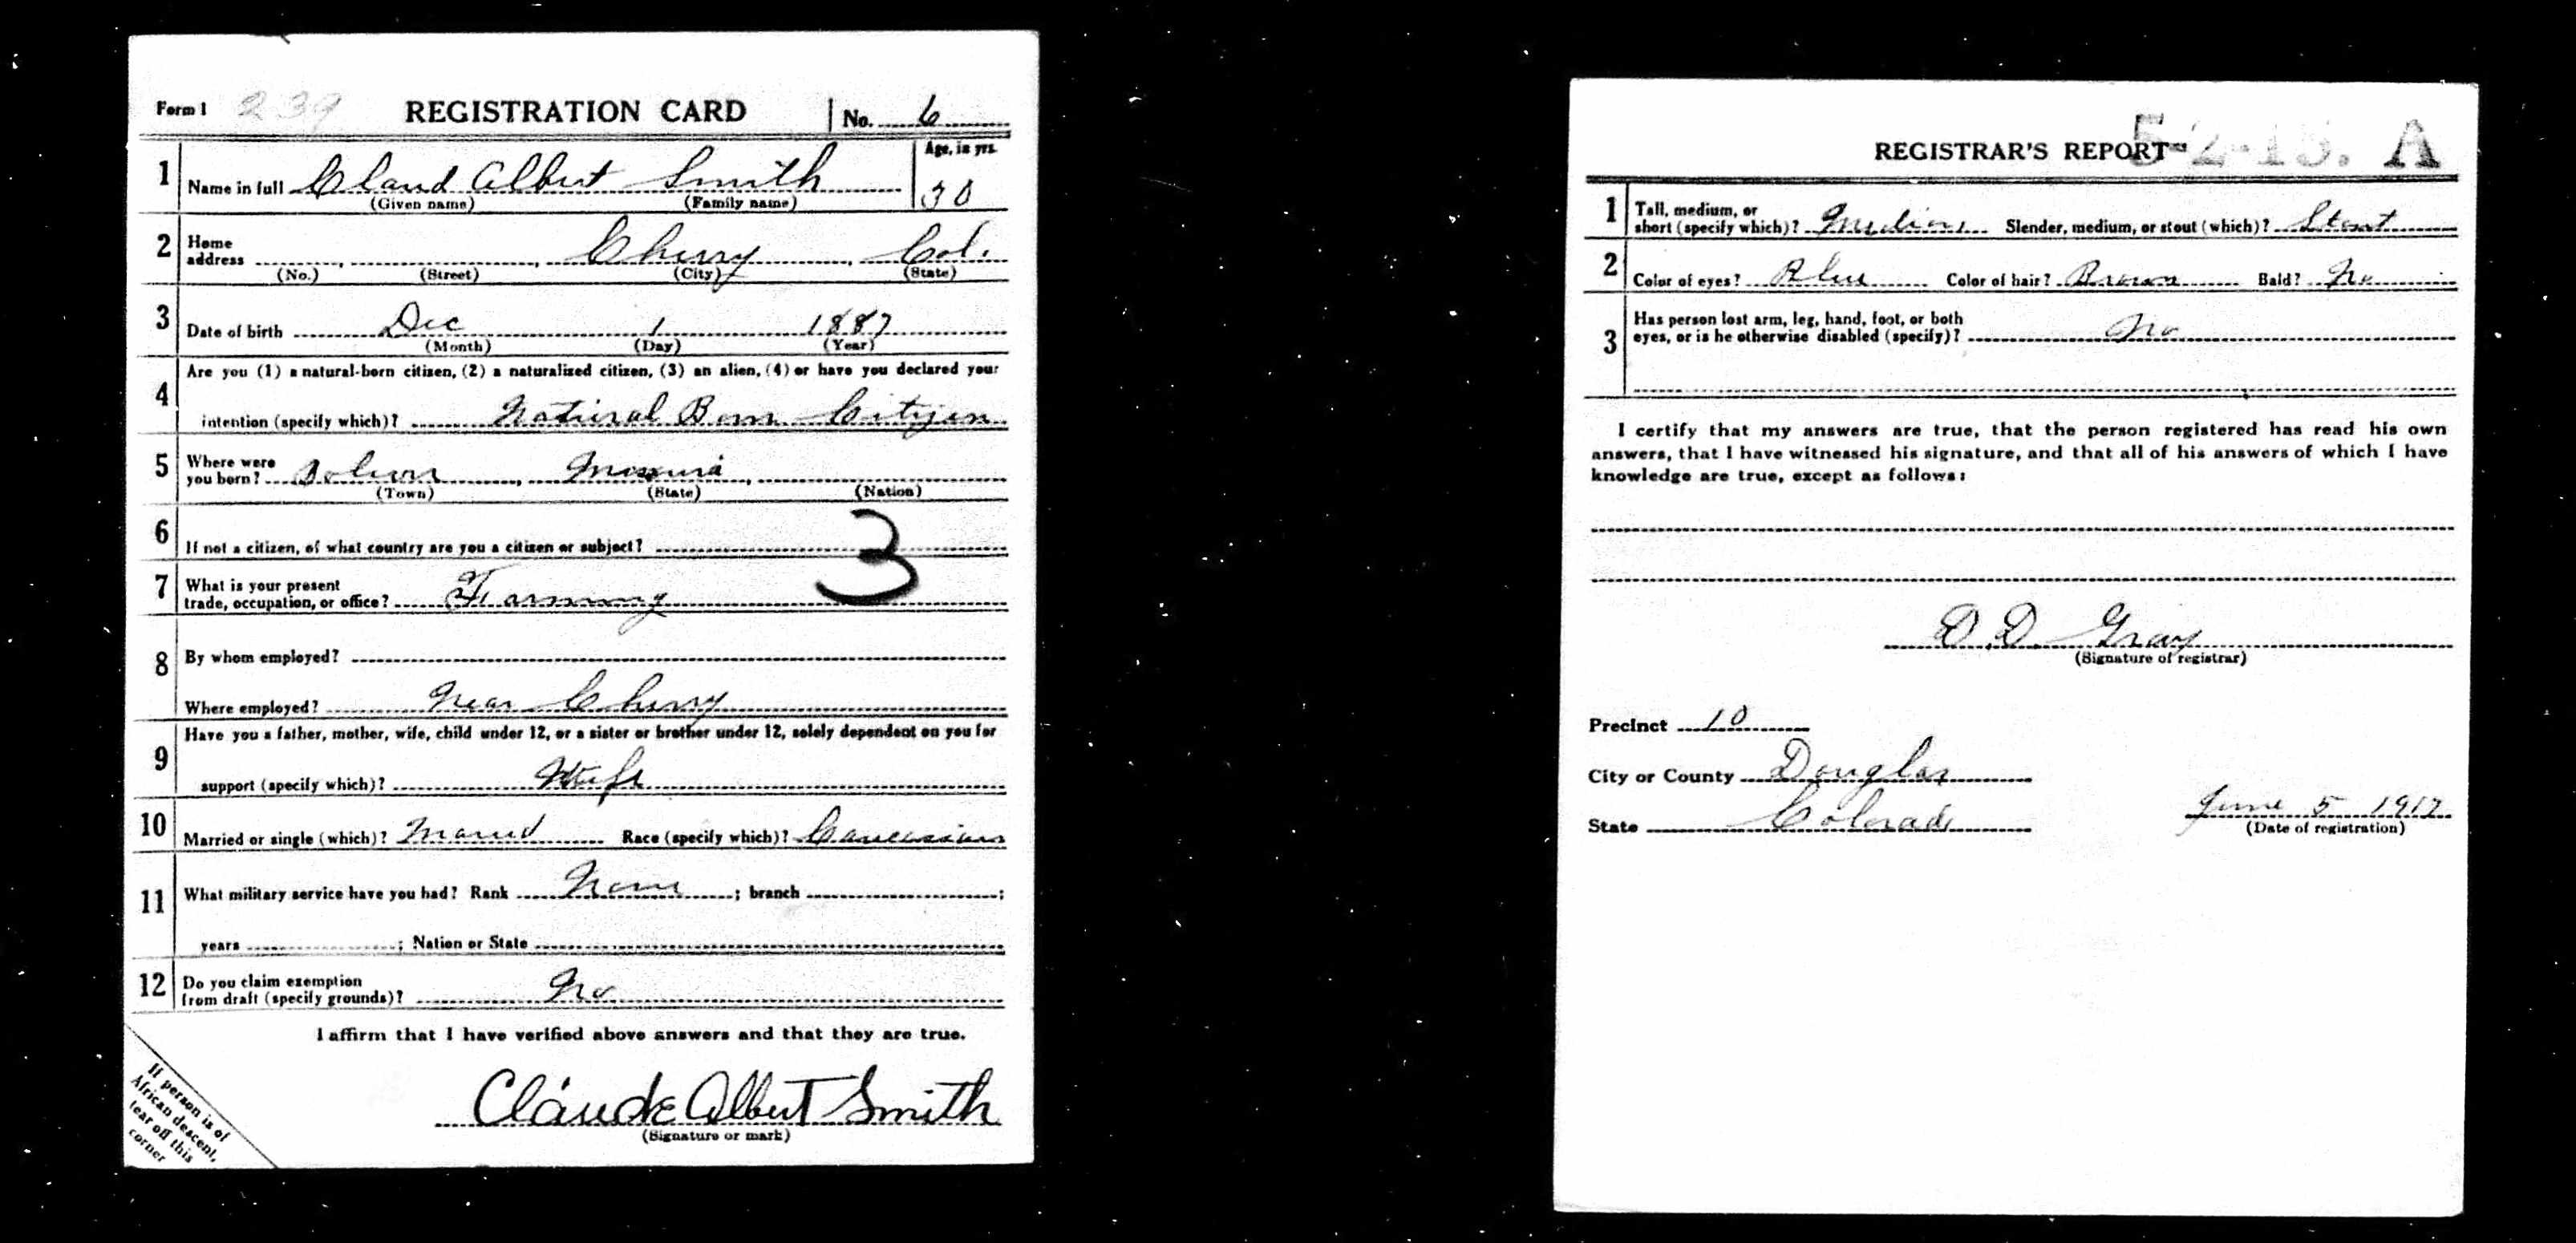 Form 1 239 REGISTRATION CARD No. 6
1 Name in full Claud Albert Smith Age, in yrs. 30
(Given name) (Family name)
2 Home address Cherry, Col.
(No.) (Street) (City) (State)
3 Date of birth Dec 1 1887
(Month) (Day) (Year)
4 Are you (1) a natural-born citizen, (2) a naturalized citizen, (3) an alien, (4) or have you declared your
intention (specify which)? Natural Born Citizen
5 Where were you born? Missouri
(Town) (State) (Nation)
6 If not a citizen, of what country are you a citizen or subject?
3
7 What is your present trade, occupation, or office? Farming
8 By whom employed?
Where employed? Near Cherry
9 Have you a father, mother, wife, child under 12, or a sister or brother under 12, solely dependent on you for
support (specify which)? Wife
10 Married or single (which)? Married Race (specify which)? Caucasian
11 What military service have you had? Rank None ; branch ;
years ; Nation or State
12 Do you claim exemption from draft (specify grounds)? No
I affirm that I have verified above answers and that they are true.
Claude Albert Smith
(Signature or mark)
If person is of
African descent,
tear off this
corner
REGISTRAR'S REPORT 5-2-15. A
1 Tall, medium, or short (specify which)? Medium Slender, medium, or stout (which)? Stout
2 Color of eyes? Blue Color of hair? Brown Bald? No
3 Has person lost arm, leg, hand, foot, or both
eyes, or is he otherwise disabled (specify)? No
I certify that my answers are true, that the person registered has read his own
answers, that I have witnessed his signature, and that all of his answers of which I have
knowledge are true, except as follows:
D. D. Gray
(Signature of registrar)
Precinct 10
City or County Douglas
State Colorado June 5 1917
(Date of registration)